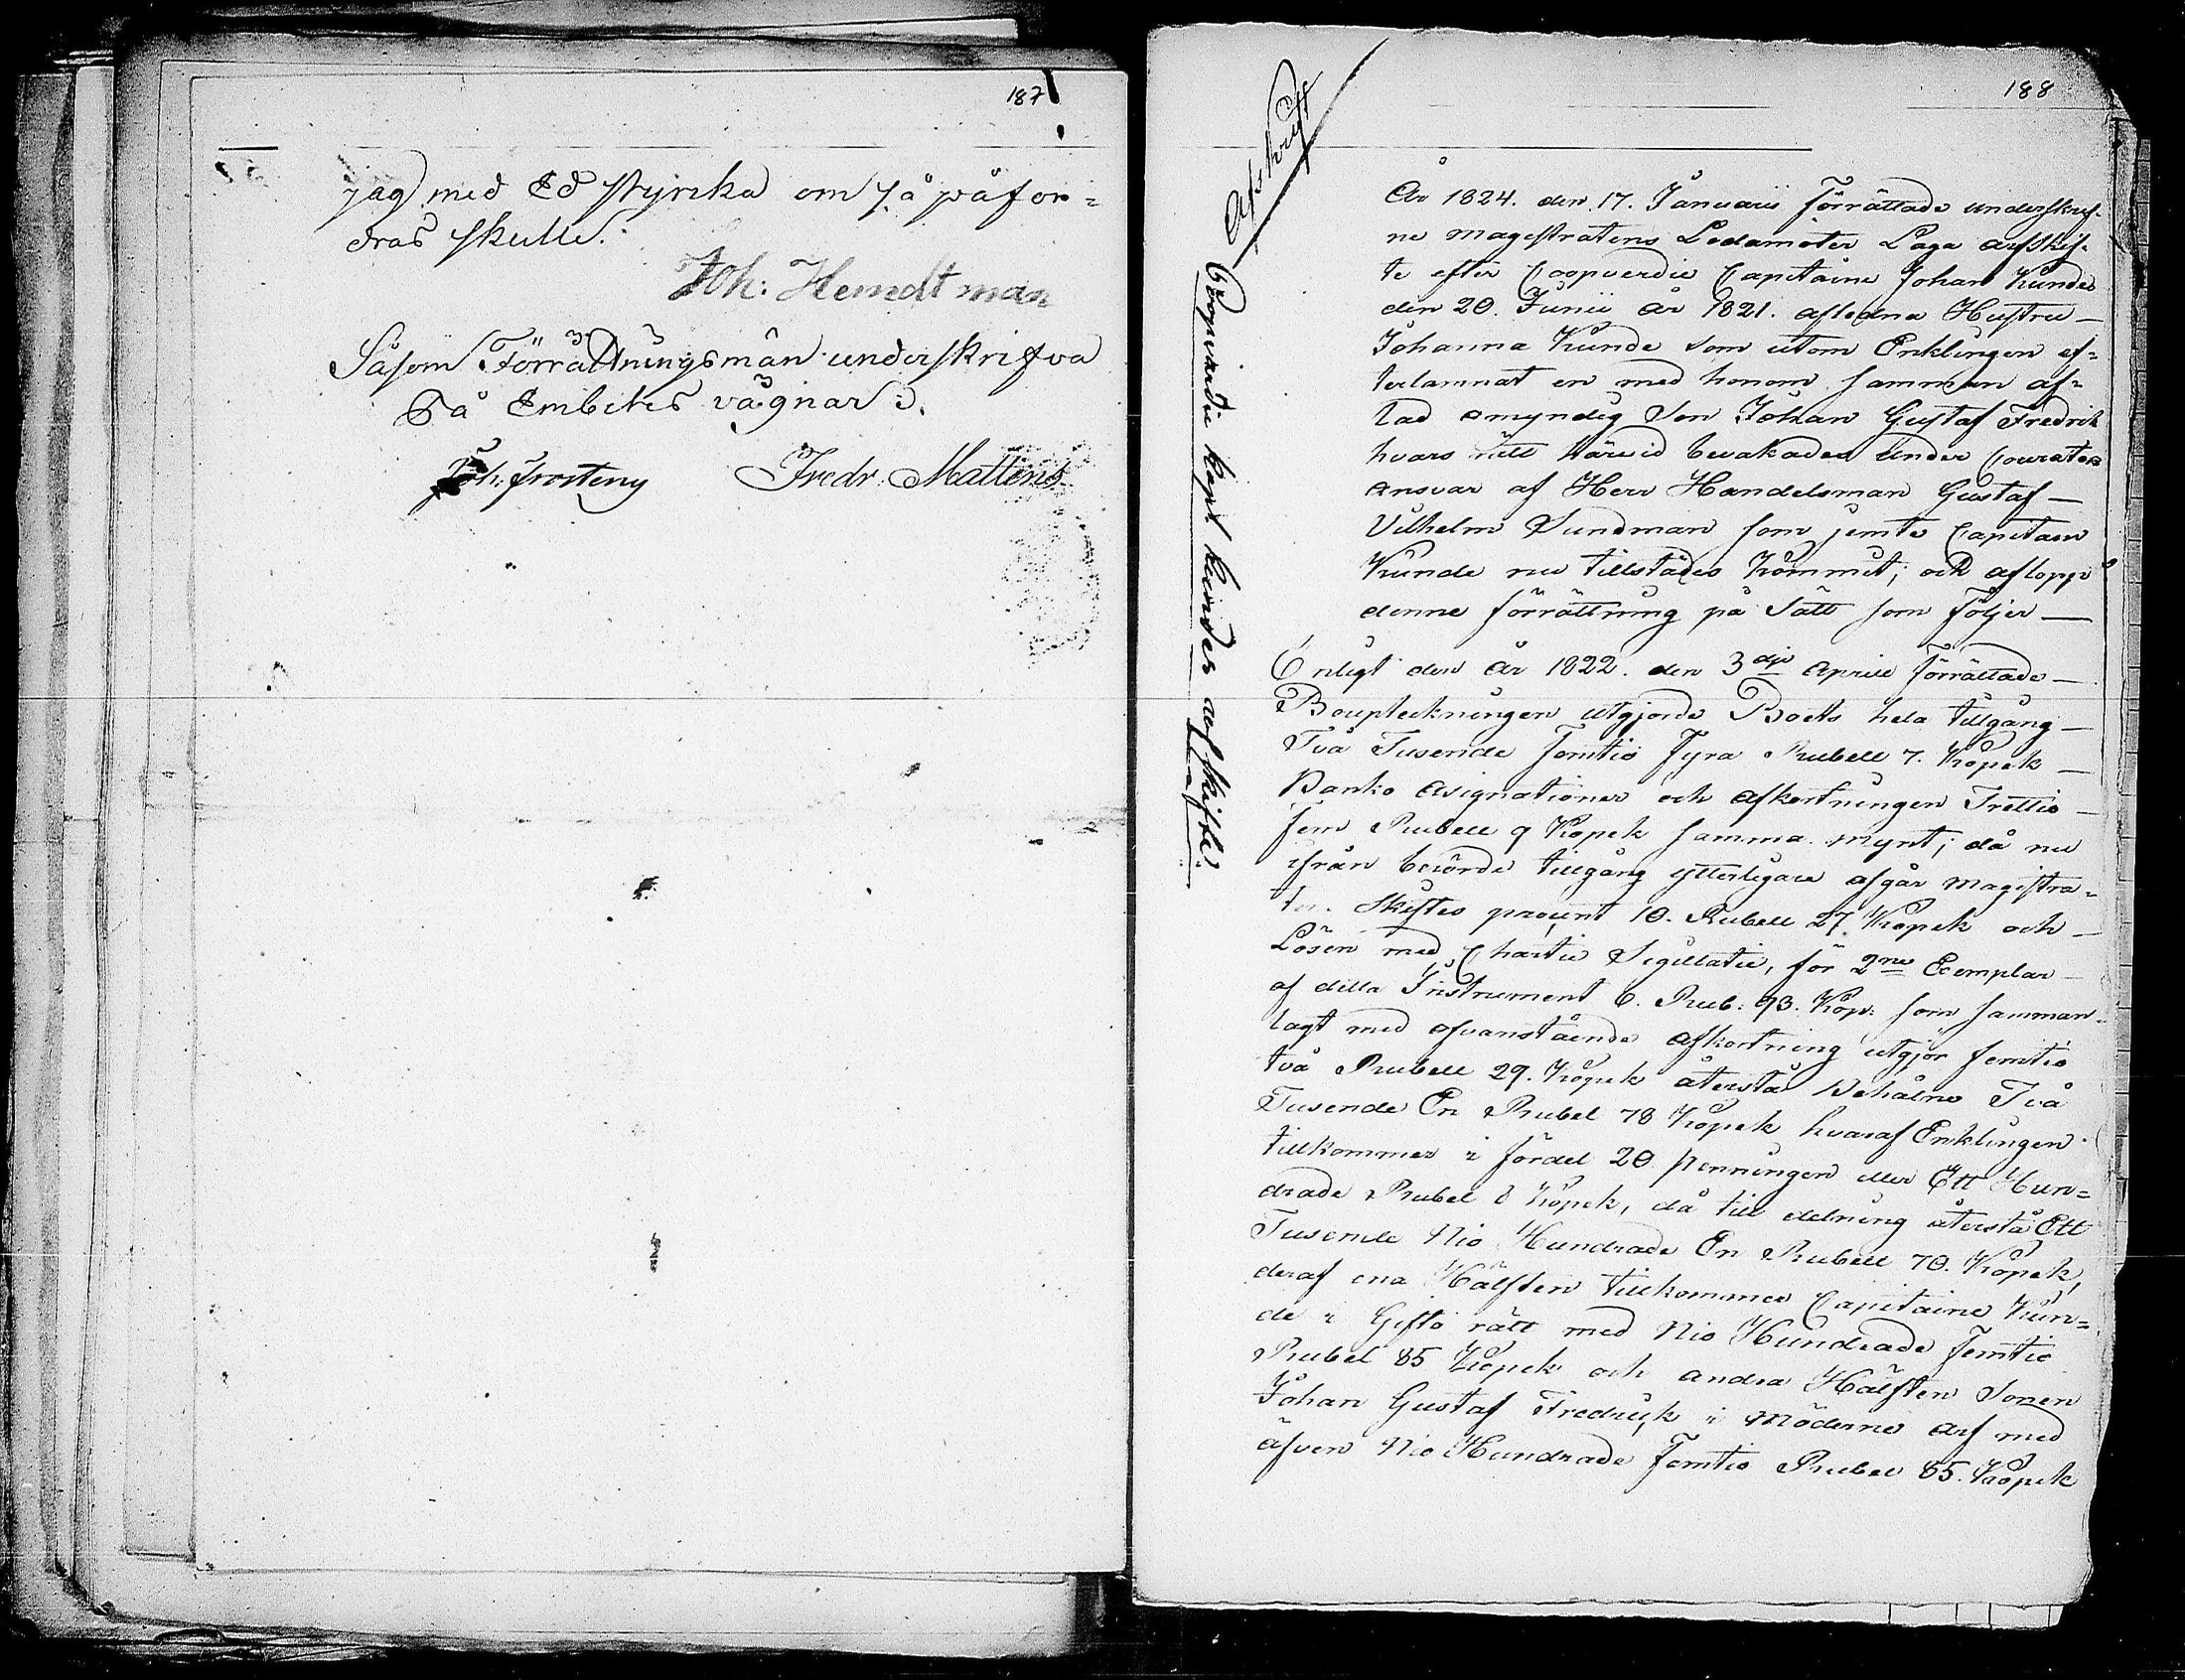 187
jag med Ed styrcka om så påfor=
dras skulle.
Joh: Hemdtman
Såsom Förrättningsmän underskrifva
På Embetes vägnar.
Joh: Frosteng Fredr. Mattens
188
Afskrift
Coopvardie kapt. Kundes arfskifte.
År 1824. den 17. Januarii förrättade underskref-
ne magistratens Ledamöter Laga arfskif-
te efter Coopverdie Capitaine Johan Kundes
den 20. Junii år 1821. afledna Hustru —
Johanna Kunde som utom Enklingen ef=
terlamnat en med honom samman af=
lad omyndig Son Johan Gustaf Fredrik
hvars rätt härvid bevakades under Courators
ansvar af Herr Handelsman Gustaf —
Vilhelm Sundman som jemte Capitain
Kunde nu tillstädes kommit; och aflopp
denne förrättning på Sätt som följer —
Enligt den år 1822. den 3dje Aprill förrättade —
Boupteckningen utgjorde Boets hela tillgång —
Två Tusende femtio Fyra Rubell 7. Kopek —
Banko Assignationer och afkortningen Trettio —
fem Rubell 9 Kopek samma mynt; då nu
ifrån berörde tillgång ytterligare afgår magistra=
ten Skiftes procent 10. Rubell 27. Kopek och —
Lösen med Chartæ Sigillatæ, för 2ne Exemplar —
af detta Instrument 6. Rub: 93. Kop: som samman=
lagt med ofvanstående afkortning utgjör femtio
två Rubell 29. Kopek återstå Behålne Två
Tusende En Rubel 78 Kopek hvaraf Enklingen
tillkommer i fördel 20 penningen eller Ett Hun=
drade Rubel 8 Kopek, då till delning återstå Ett
Tusende Nio Hundrade En Rubell 70. Kopek,
deraf ena Hälften tillkommer Capitaine Kun=
de i Gifto rätt med Nio Hundrade femtio
Rubel 85 Kopek och andra Hälften Sonen
Johan Gustaf Fredrick i Möderne arf med
äfven Nio Hundrade Femtio Rubel 85. Kopek